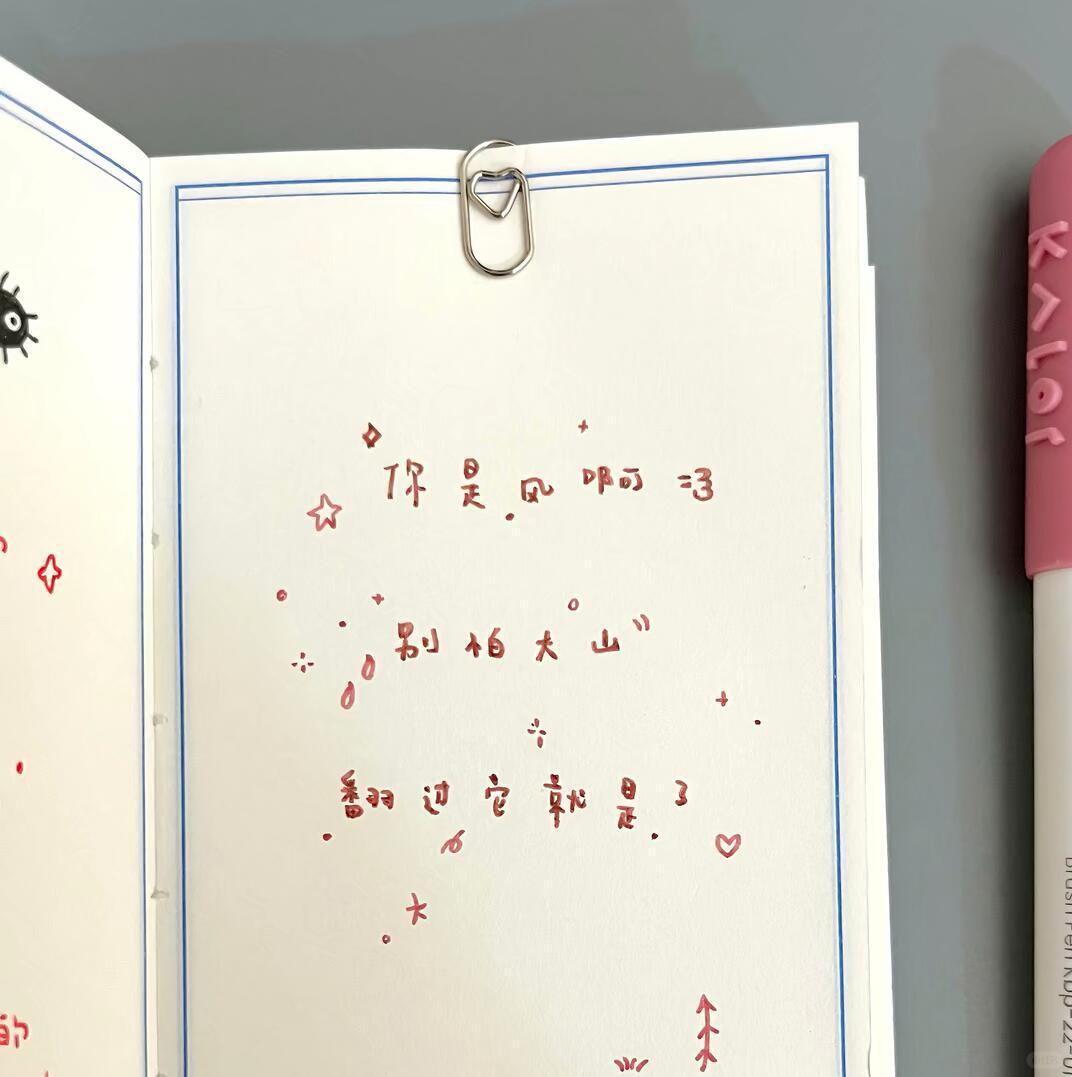 你是风啊 =3
别怕大山
翻过它就是了
的
KALOR
Brush Pen KBP-22-0